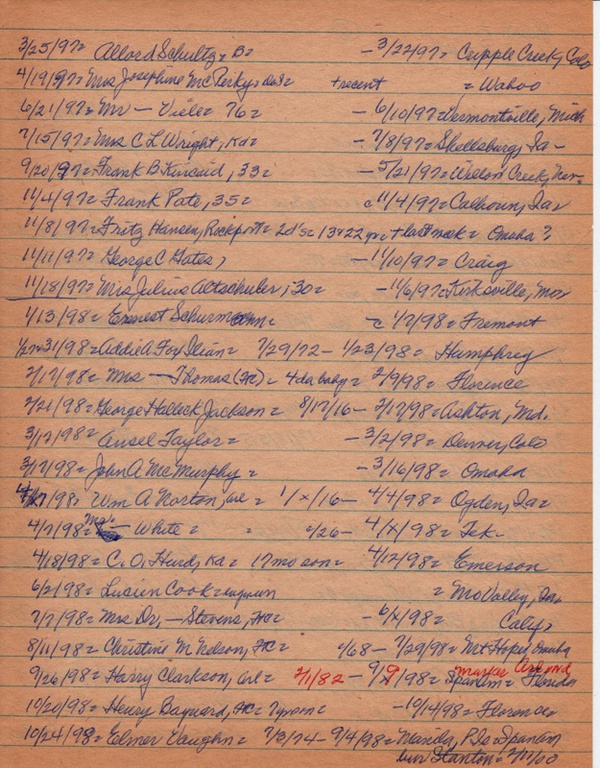 3/25/97= Allard Schultz, B= - 3/22/97= Cripple Creek, Colo
4/19/97= Mrs Josephine McPerky, = +recent = Wahoo
6/21/97= Mr — Viele= 76= - 6/10/97= Vermontville, Mich
7/15/97= Mrs C L Wright, Ka= - 7/8/97= Shellsburg, Ia-
9/20/97= Frank B Kincaid, 33= - 5/21/97= Willow Creek,
11/4/97= Frank Pate, 35= c 11/4/97= Calhoun, Ia=
11/8/97= Fritz Hansen, Rockport= 2d's= 13+22 yr= +last week= Omaha?
11/11/97= George C Gates, - 11/10/97= Craig
11/18/97= Mrs Julius Altschuler, 30= - 11/6/97= Kirksville, Mo=
1/13/98= Ernest Schurmann= c 1/7/98= Fremont
1/27+31/98= Addie A Fox Ilian= 7/29/72- 1/23/98= Humphrey
2/17/98= Mrs — Thomas (Fc)= 4da baby= 2/9/98= Florence
2/21/98= George Halleck Jackson= 8/17/16- 2/17/98= Ashton, Md.
3/17/98= Ansel Taylor= - 3/2/98= Denver, Colo
3/17/98= John A McMurphy= - 3/16/98= Omaha
4/7/98= Wm A Norton, = 1/x/16- 4/4/98= Ogden, Ia=
4/7/98= Mrs — White= = c/26- 4/x/98= Tek-
4/18/98= C. O. Hurd, Ka= 17 mo son= 4/12/98= Emerson
6/2/98= Lusien Cook= = Mo Valley, Ia.
7/7/98= Mrs Dr. — Stevens, Fc= - 6/x/98= Calif,
8/11/98= Christine M Nelson, Fc= c/68- 7/29/98= Mt Hope, Omaha
9/26/98= Harry Clarkson, 2/1/82- 9/9/98= SpanAm= Florida
marker
10/20/98= Henry Bayard, Fc= - 10/14/98= Florence=
10/24/98= Elmer Vaughn= 7/3/74- 9/4/98= Manila, P.I.= SpanAm
bur Stanton= 2/11/00